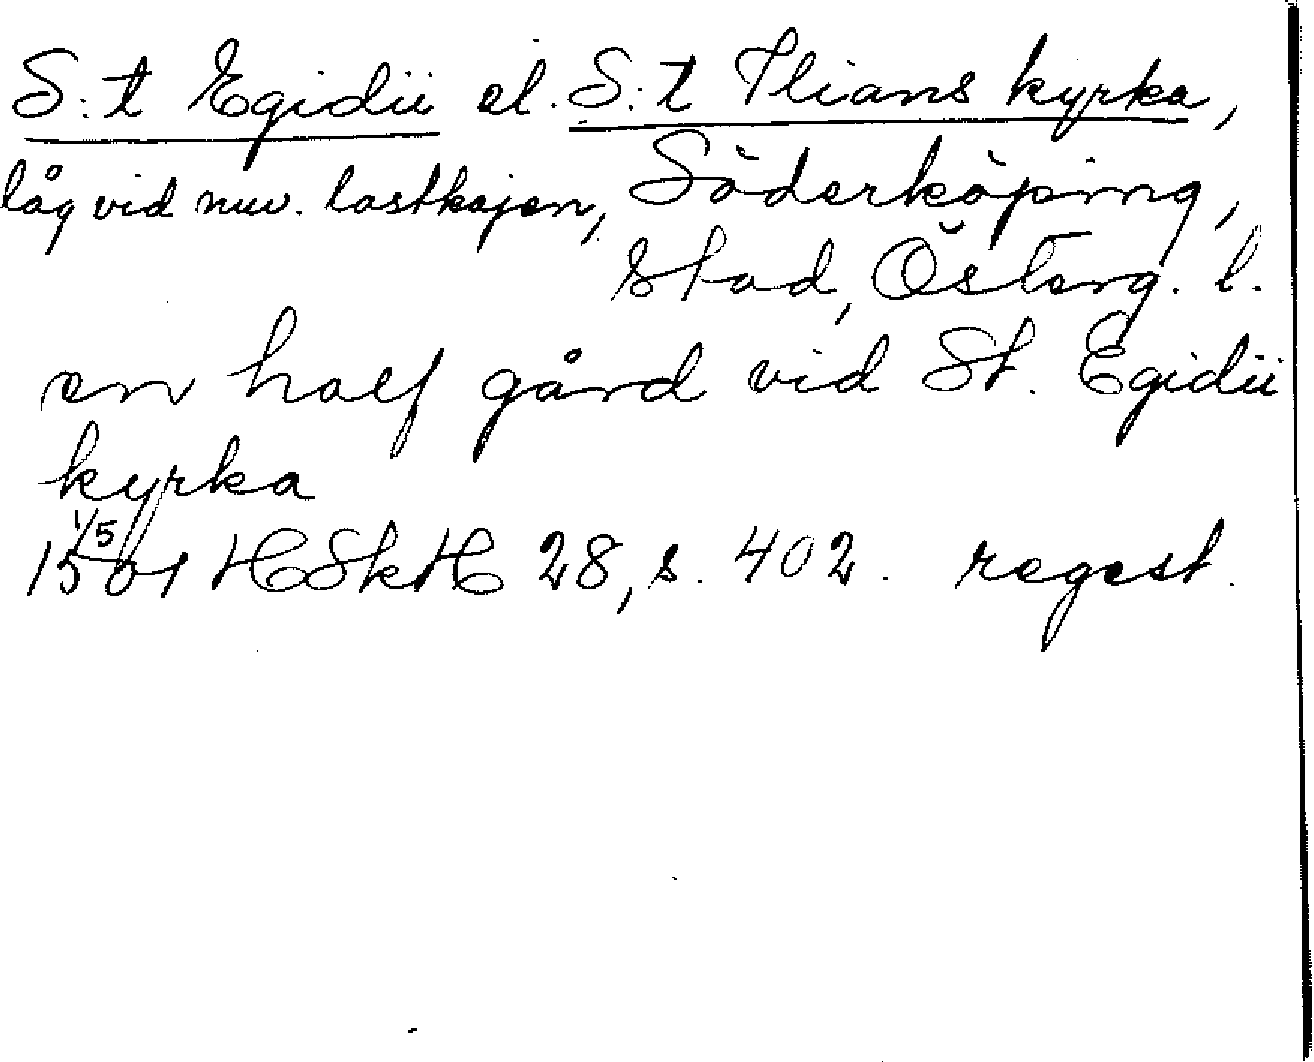 S:t Egidii el. S:t Ilians kyrka,
låg vid nuv. lastkajen, Söderköping,
stad, Österg. l.
en half gård vid St. Egidii
kyrka
1/5
1501 HSkH 28, s. 402. regest.